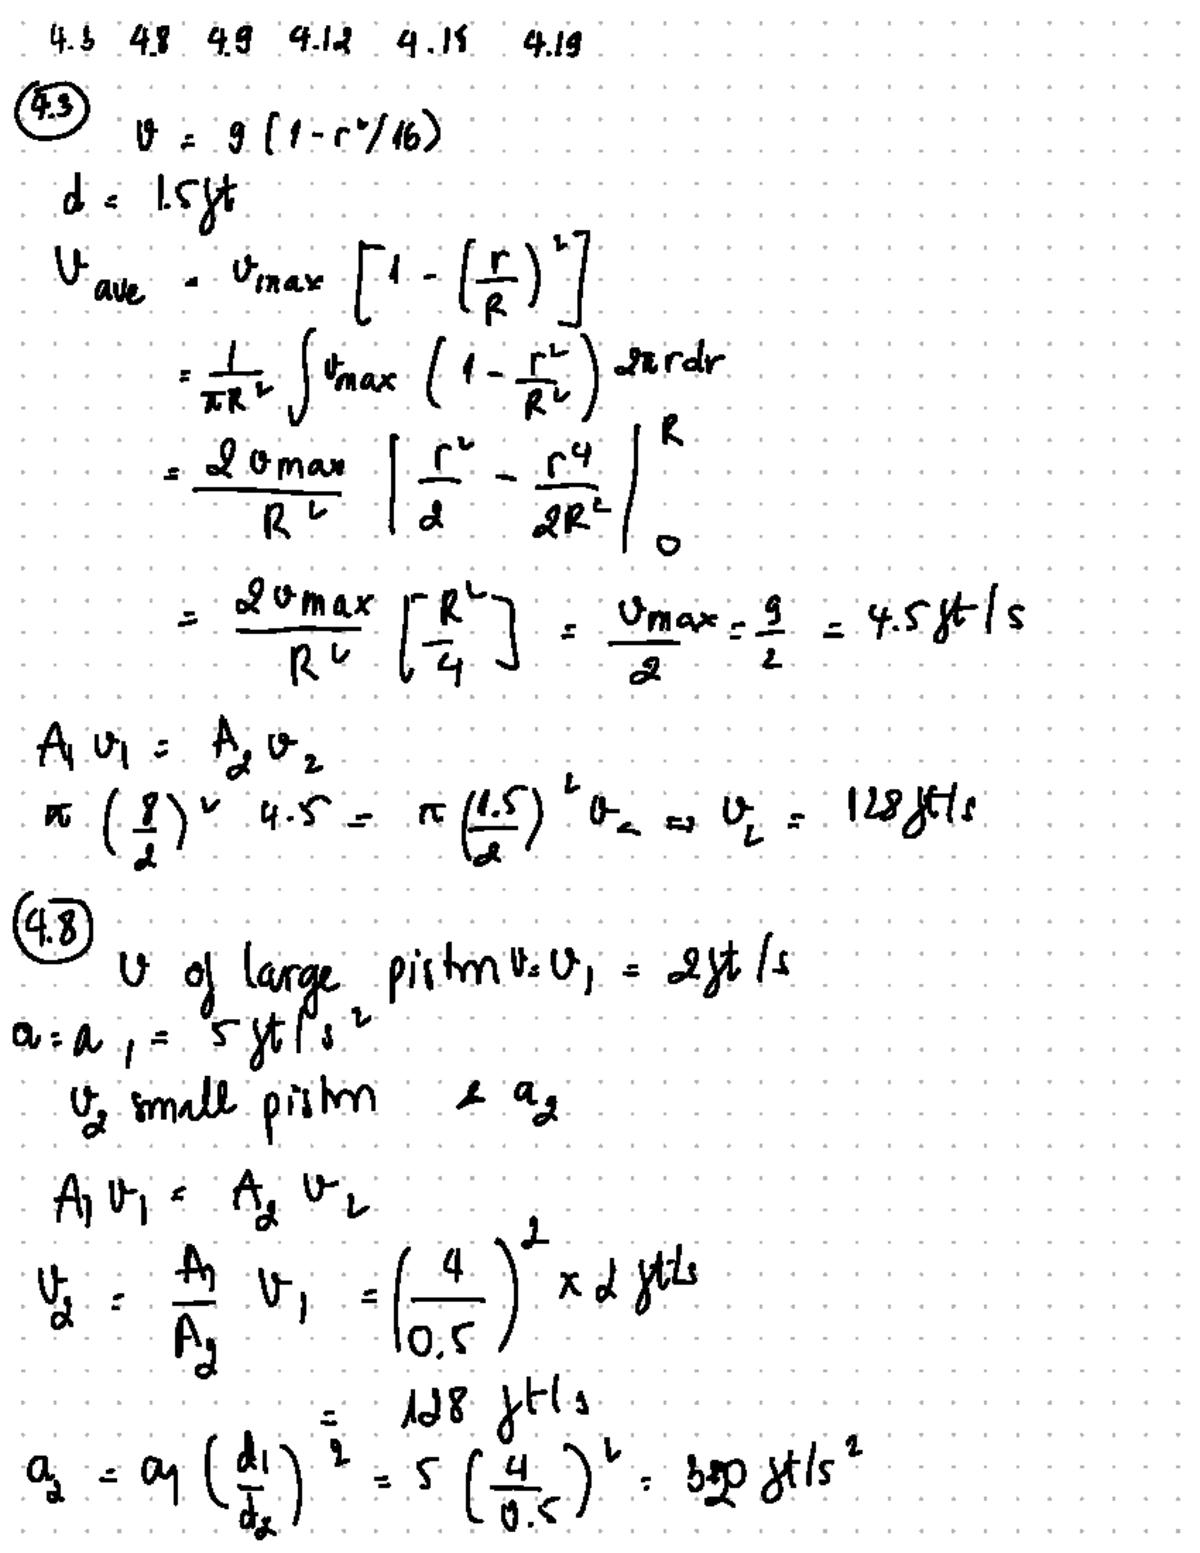 4.3 4.8 4.9 4.12 4.15 4.19
4.3
v = 9 (1 - r²/16)
d = 1.5 ft
v ave = vmax [1 - (r/R)²]
= 1/πR² ∫ vmax (1 - r²/R²) 2πrdr
= 2vmax/R² | r²/2 - r⁴/2R² |₀ᴿ
= 2vmax/R² [R²/4] = vmax/2 = 9/2 = 4.5 ft/s
A₁ v₁ = A₂ v₂
π (8/2)² 4.5 = π (1.5/2)² v₂ ⇒ v₂ = 128 ft/s
4.8
v of large piston v = v₁ = 2 ft/s
a = a₁ = 5 ft/s²
v₂ small piston & a₂
A₁ v₁ = A₂ v₂
v₂ = A₁/A₂ v₁ = (4/0.5)² × 2 ft/s
= 128 ft/s
a₂ = a₁ (d₁/d₂)² = 5 (4/0.5)² = 320 ft/s²